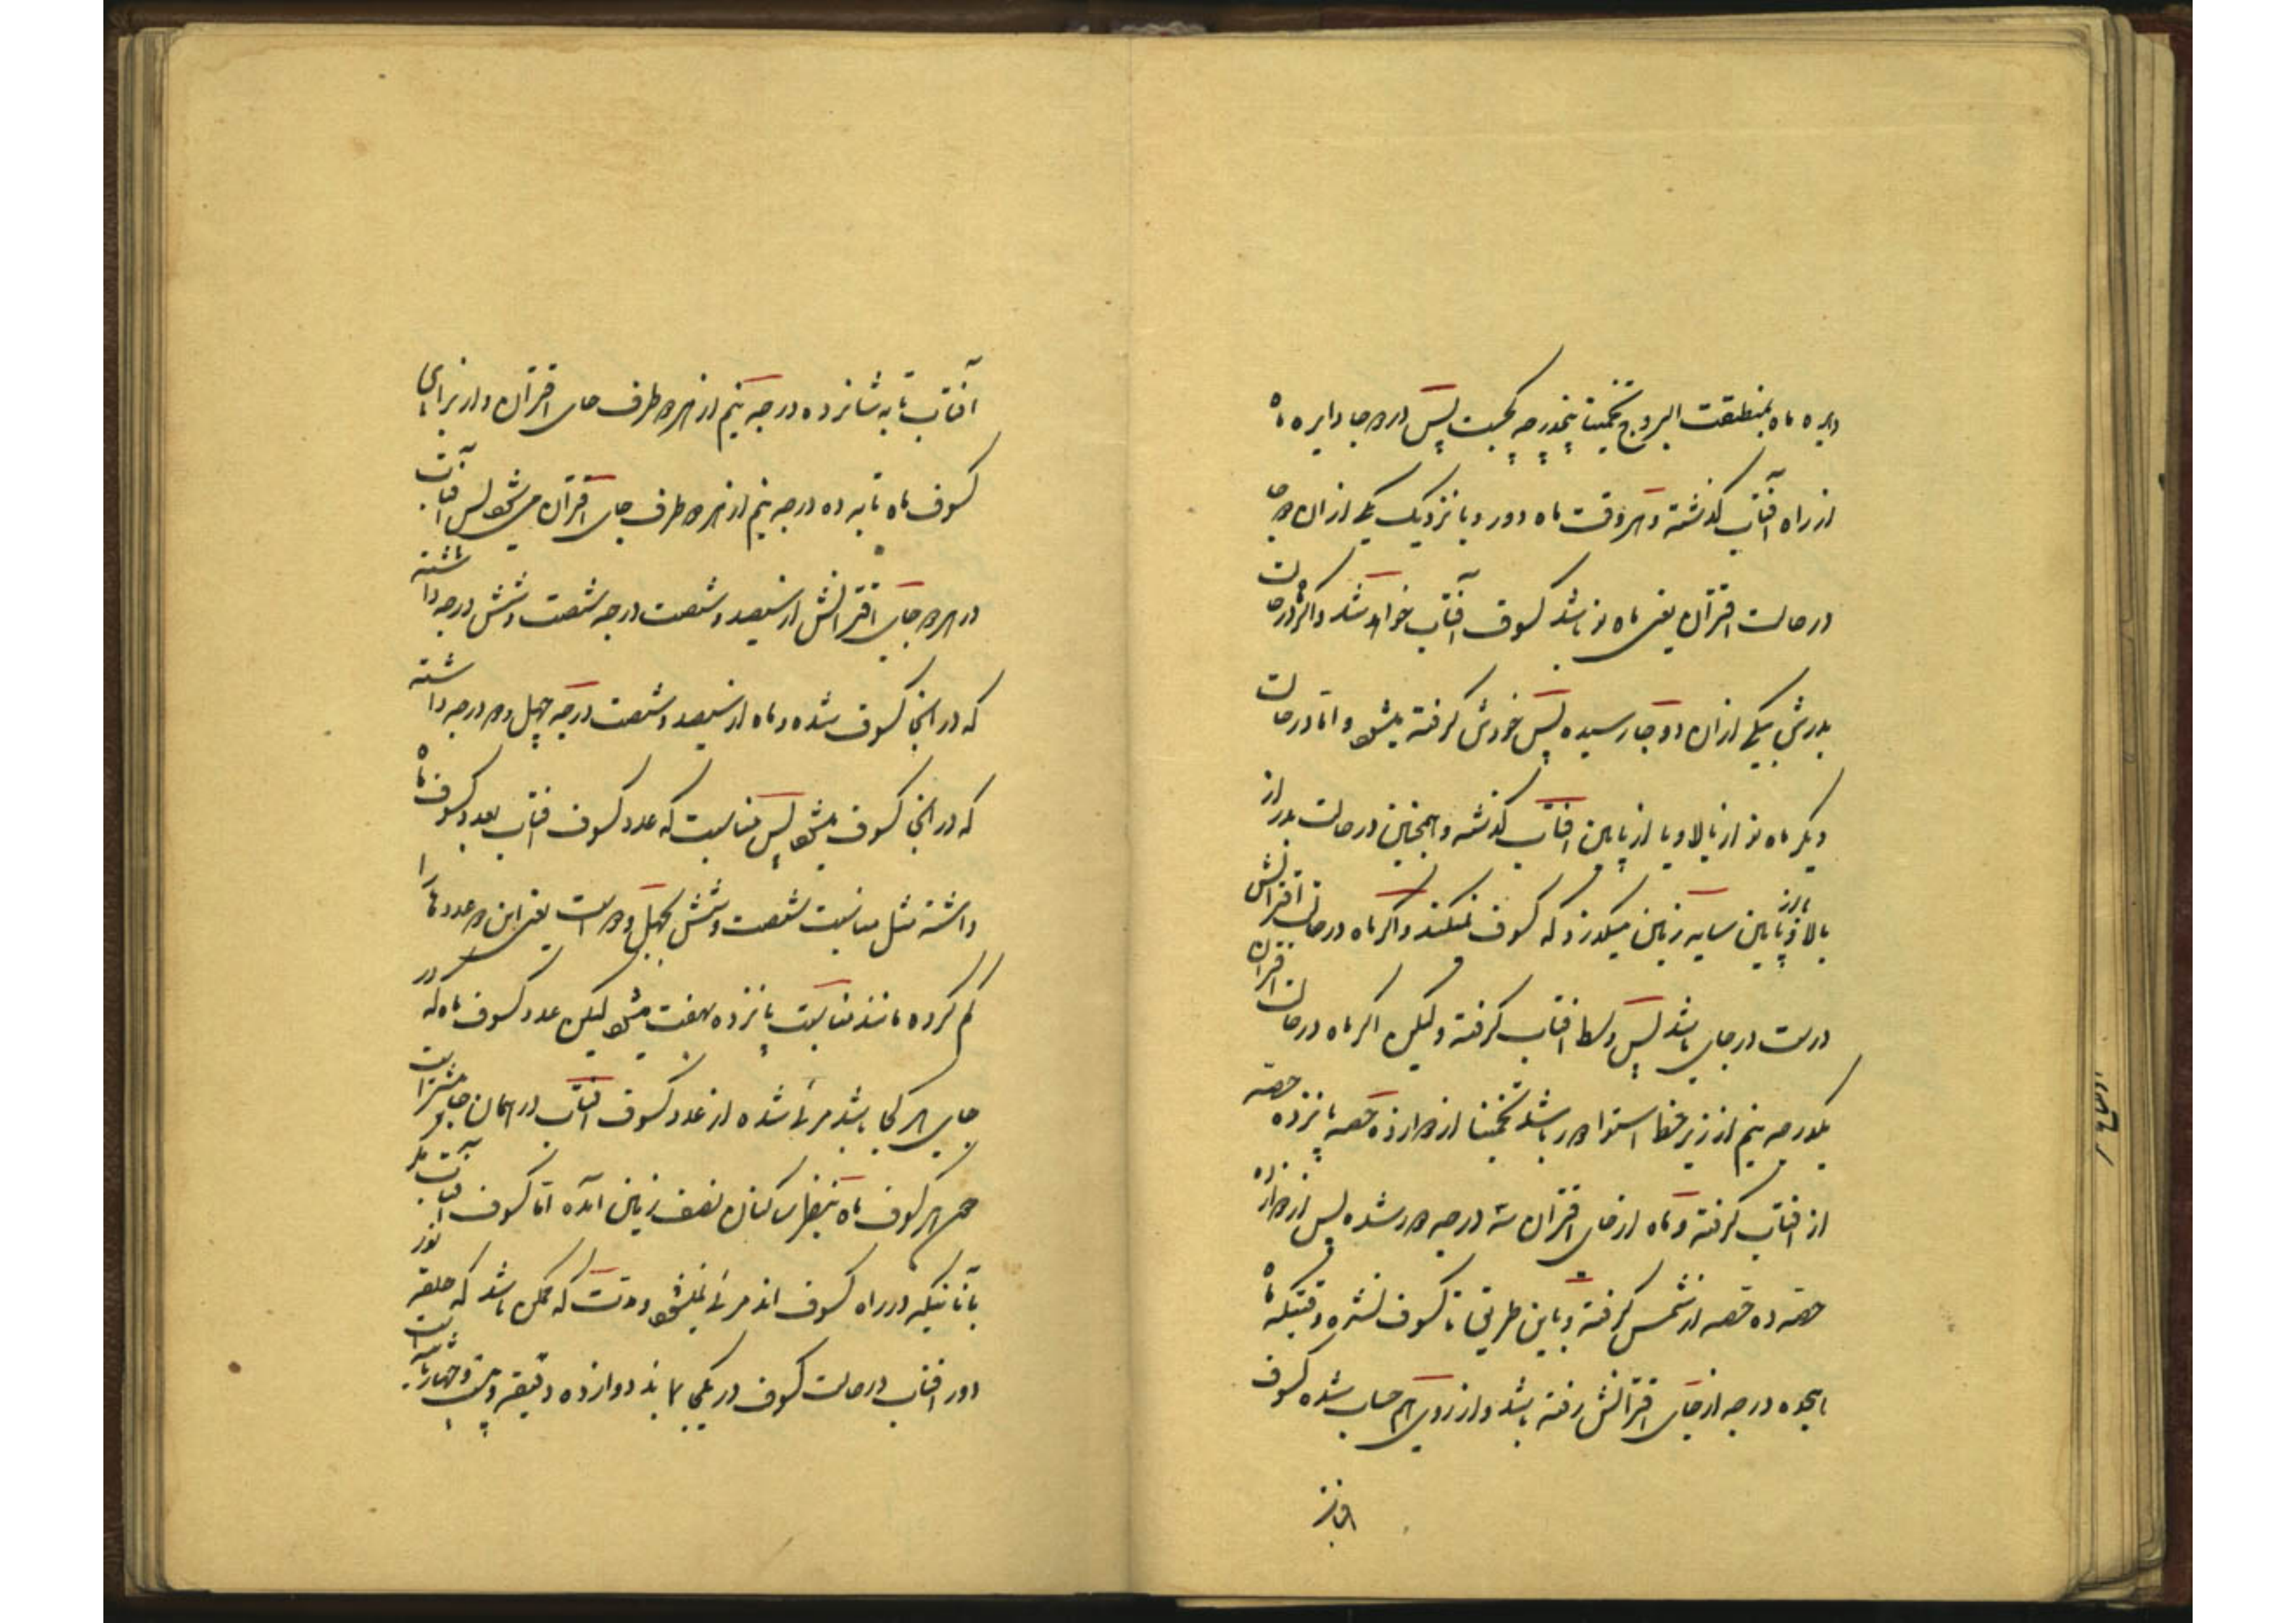 دایره ماه بمنطقت البروج تخمینا پنجدرجه کجیست پس در دو جا دایره ماه
از راه آفتاب گذشته و هر وقت ماه دور و یا نزدیک یکی از ان دو جا
در حالت اقتران یعنی ماه نو باشد کسوف آفتاب خواهد شد و اگر در حالت
بدرش بیکی از ان دو جا رسیده پس خودش گرفته میشود و اما در حالت
دیگر ماه نو از بالا و یا از پایین افتاب گذشته و همچنین در حالت بدر از
بالا و یا از پایین سایه زمین میگذرد که کسوف نمیکند و اگر ماه در حالت اقترانش
درست در جای باشد پس وسط افتاب گرفته ولیکن اگر ماه در حالت اقتران
یکدرجه نیم از زیر خط استوا دور باشد تخمینا از دوازده حصه یازده حصه
از افتاب گرفته و ماه از جای اقتران سه درجه دور شده پس از دوازده
حصه ده حصه از شمس گرفته و باین طریق تا کسوف نشده وقتیکه ماه
درجه از جای اقترانش رفته باشد و از روی هم حساب شده کسوف
آفتاب تا به شانزده درجه نیم از هر دو طرف جای اقتران و از برای
کسوف ماه تا به ده درجه نیم از هر دو طرف جای اقتران میشود پس آفتاب
در هر دو جای اقترانش از سیصد و شصت درجه شصت و شش درجه داشته
که در انجا کسوف شده و ماه از سیصد و شصت درجه چهل و دو درجه داشته
که در انجا کسوف میشود پس مناسبت که عدد کسوف افتاب بعدد کسوف ماه
داشته مثل مناسبت شصت و شش بچهل و دو است یعنی این دو عددها را
کم کرده مانند مناسبت یازده بهفت میشود لیکن عدد کسوف ماه که در
جای هر کجا باشد مرئی شده از عدد کسوف افتاب در همان جا بیشتر است
چون هر کسوف ماه بنظر ساکنان نصف زمین آمده اما کسوف آفتاب مگر
بآنانیکه در راه کسوف اند مرئی نمیشود و مدت که ممکن باشد که حلقه نور
دور افتاب در حالت کسوف در یکجا بماند دوازده دقیقه و بیست و چهار ثانیه است